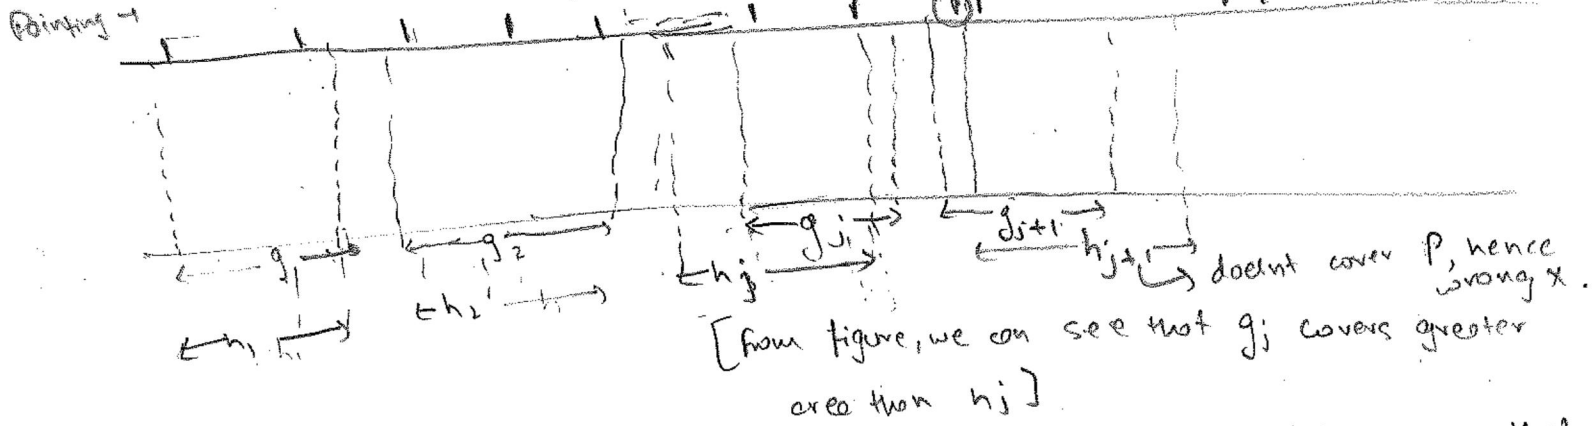 Painting →
g₁ g₂ gⱼ gⱼ₊₁
h₁ h₂ hⱼ hⱼ₊₁ → doesnt cover P, hence
wrong x.
[from figure, we can see that gj covers greater
area than hj]